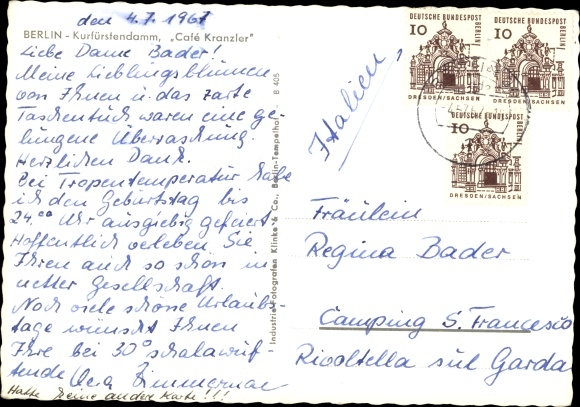 den 4.7.1967
BERLIN - Kurfürstendamm, „Café Kranzler"
Liebe Dame Bader!
Meine Lieblingsblumen
von Ihnen u. das zarte
Taschentuch waren eine ge-
lungene Überraschung.
Herzlichen Dank.
Bei Tropentemperatur habe
ich den Geburtstag bis
24.00 Uhr ausgiebig gefeiert
Hoffentlich verleben Sie
Ihren auch so schön in
netter Gesellschaft.
Noch viele schöne Urlaubs-
tage wünscht Ihnen
Ihre bei 30°
Vera Zimmerman
Hatte keine andere Karte!!!
B 405
Industrie-Fotografen Klinke & Co., Berlin-Tempelhof
DEUTSCHE BUNDESPOST BERLIN
10
DRESDEN/SACHSEN
DEUTSCHE BUNDESPOST BERLIN
10
DRESDEN/SACHSEN
DEUTSCHE BUNDESPOST BERLIN
10
DRESDEN/SACHSEN
Italien
Fräulein
Regina Bader
Camping S. Francesco
Rivoltella sul Garda